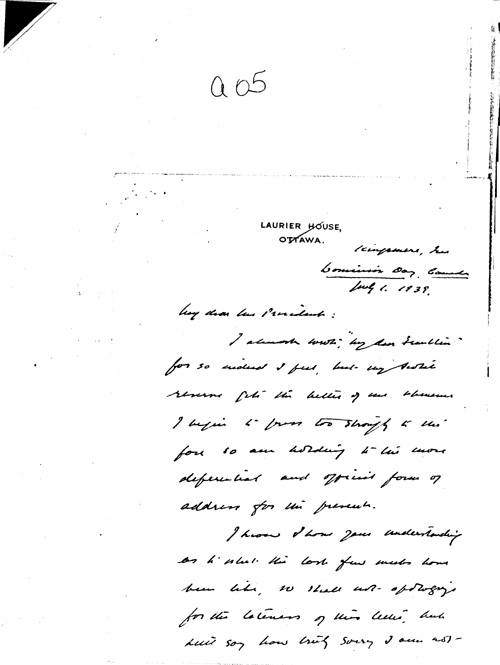 a 05
LAURIER HOUSE,
OTTAWA.
Kingsmere,
Dominion Day, Canada
July 1. 1939.
My dear Mr President:
I almost wrote, "My dear Franklin"
for so indeed I feel, but my Scotch
reserve gets the better of me whenever
I begin to press too strongly to the
fore so am holding to the more
deferential and official form of
address for the present.
I know I have your understanding
as to what the last few weeks have
been like, so shall not apologize
for the lateness of this letter, but
will say how truly sorry I am not-